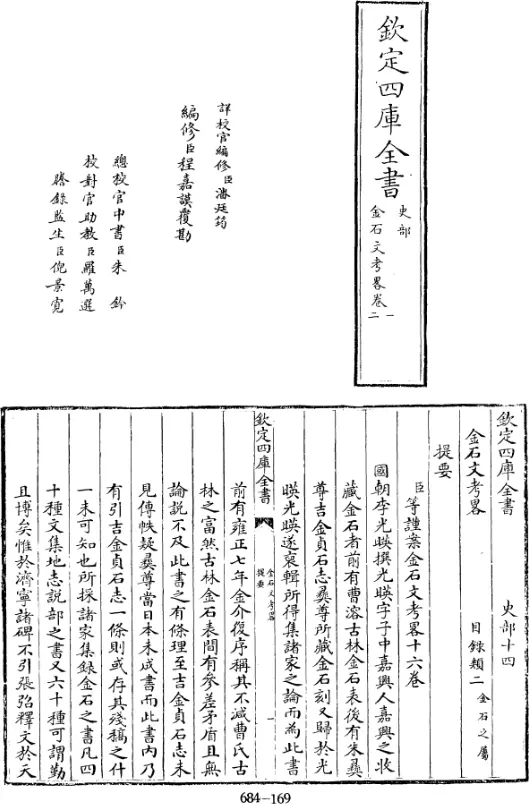 欽定四庫全書
史部
金石文考畧卷一二
詳校官編修臣潘廷筠
編修臣程嘉謨覆勘
總校官中書臣朱鈐
校對官助教臣羅萬選
謄錄監生臣倪景寛
欽定四庫全書 史部十四
金石文考畧 目錄類二 金石之屬
提要
臣等謹案金石文考畧十六卷
國朝李光暎撰光暎字子中嘉興人嘉興之收
藏金石者前有曹溶古林金石表後有朱彞
尊吉金貞石志彞尊所藏金石刻又歸於光
暎光暎遂裒輯所得集諸家之論而為此書
欽定四庫全書 金石文考畧 提要 一
前有雍正七年金介復序稱其不減曹氏古
林之富然古林金石表間有參差矛盾且無
論說不及此書之有條理至吉金貞石志未
見傳帙疑彞尊當日本未成書而此書内乃
有引吉金貞石志一條則或存其殘稿之什
一未可知也所採諸家集録金石之書凡四
十種文集地志說部之書又六十種可謂勤
且博矣惟於濟寧諸碑不引張弨釋文於天
684-169